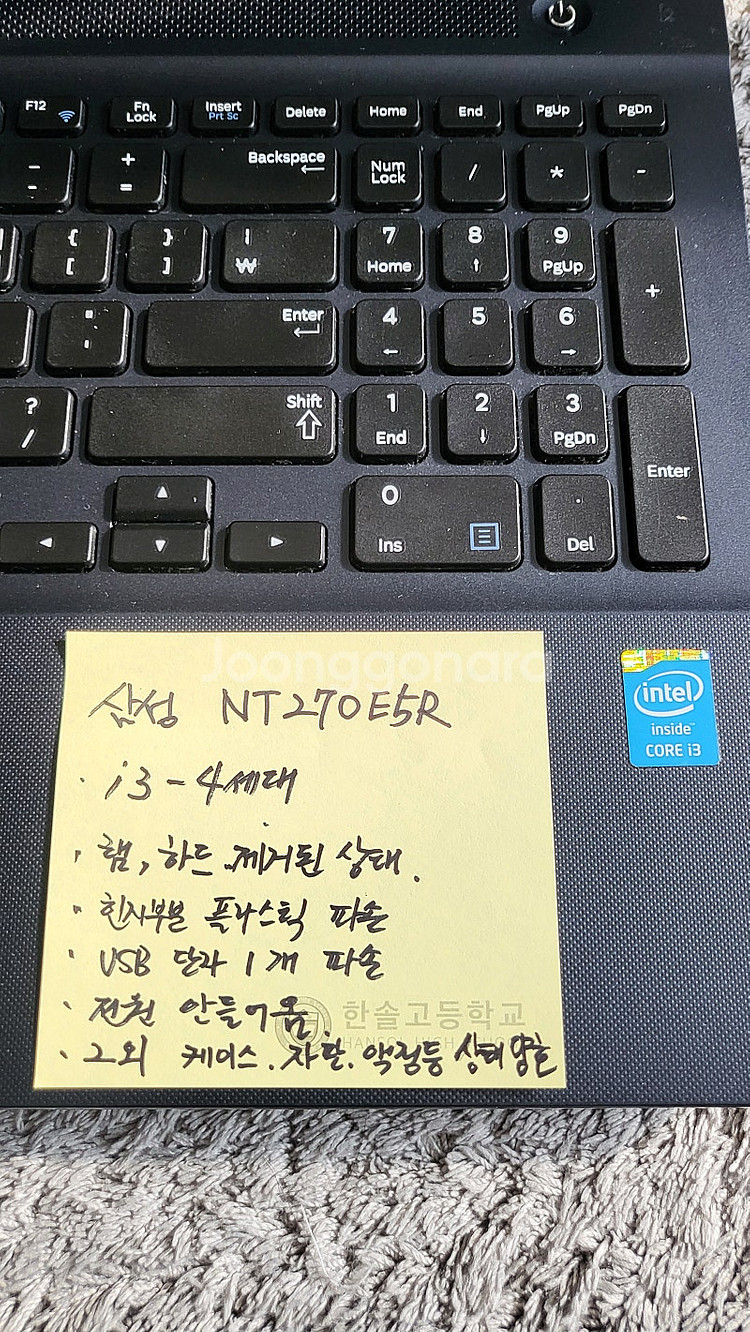 F12 Fn Lock Insert Prt Sc Delete Home End PgUp PgDn
- - + = Backspace Num Lock / * -
{ [ } ] | ₩ 7 Home 8 9 PgUp +
" ' Enter 4 5 6
? / Shift 1 End 2 3 PgDn Enter
0 Ins . Del
Joonggonara
삼성 NT270E5R
intel
inside™
CORE i3
· i3 - 4세대
· 램, 하드 제거된 상태.
· 힌지부분 플라스틱 파손
· USB 단자 1개 파손
· 전원 안들어옴.
한솔고등학교
· 그외 케이스. 자판. 액정등 상태 양호